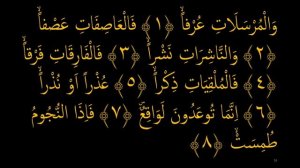 وَالْمُرْسَلَاتِ عُرْفاً ﴿١﴾ فَالْعَاصِفَاتِ عَصْفاً
﴿٢﴾ وَالنَّاشِرَاتِ نَشْراً ﴿٣﴾ فَالْفَارِقَاتِ فَرْقاً
﴿٤﴾ فَالْمُلْقِيَاتِ ذِكْراً ﴿٥﴾ عُذْراً أَوْ نُذْراً
﴿٦﴾ إِنَّمَا تُوعَدُونَ لَوَاقِعٌ ﴿٧﴾ فَإِذَا النُّجُومُ
طُمِسَتْ ﴿٨﴾